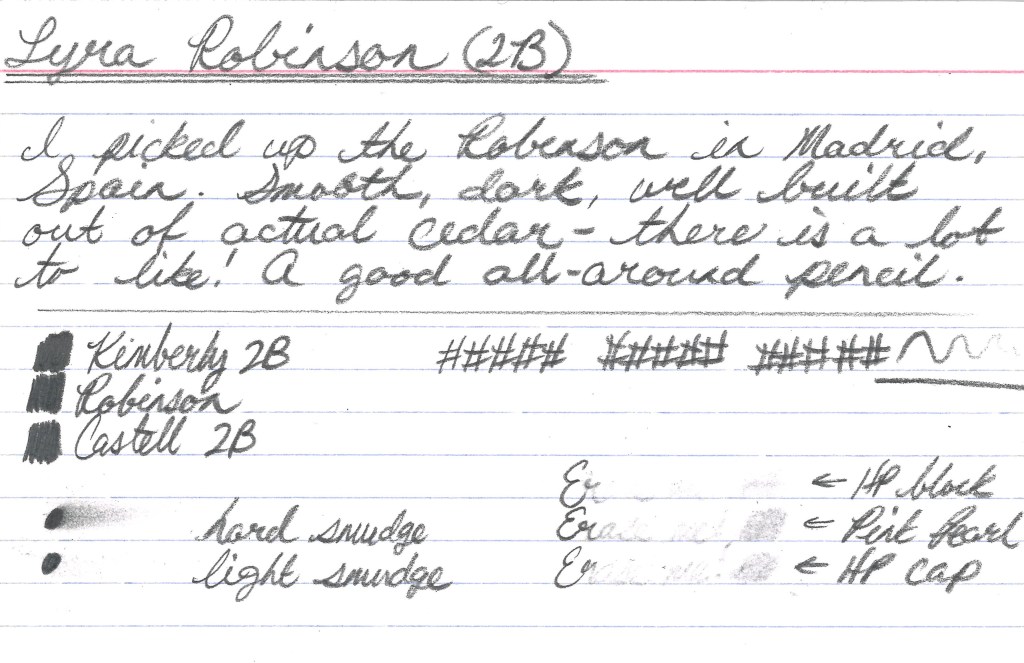 Lyra Robinson (2B)
I picked up the Robinson in Madrid,
Spain. Smooth, dark, well built
out of actual cedar - there is a lot
to like! A good all-around pencil.
Kimberly 2B ##### ##### #####
Robinson
Castell 2B
Er ← HP block
hard smudge Erase me! ← Pink Pearl
light smudge Erase me! ← HP cap